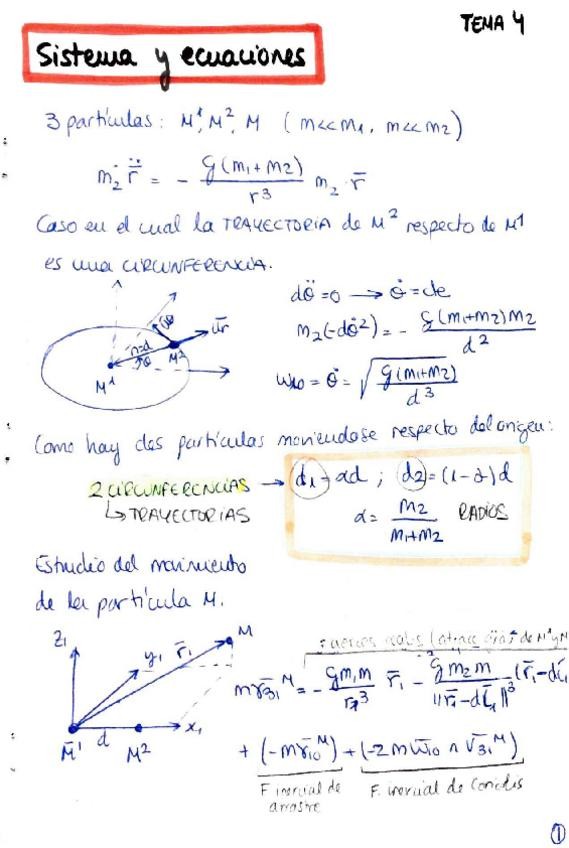 TEMA 4
Sistema y ecuaciones
3 partículas: M¹, M², M ( m<<m1, m<<m2)
m2 r̄̈ = - G(m1+m2)/r³ m2 · r̄
Caso en el cual la TRAYECTORIA de M² respecto de M¹
es una CIRCUNFERENCIA.
dθ̈=0 → θ̇=cte
m2(-dθ̇²) = - G(m1+m2)m2/d²
ω10 = θ̇ = √(G(m1+m2)/d³)
ūr
r=d
θ
M¹
M²
Como hay dos partículas moviendose respecto del origen:
2 CIRCUNFERENCIAS → d1=αd ; d2=(1-α)d
↳ TRAYECTORIAS
α = m2/(m1+m2) RADIOS
Estudio del movimiento
de la partícula M.
z1
y1
r̄1
M
x1
M̄¹
d
M²
de M¹ y M
m γ̄31ᴹ = - Gm1m/r1³ r̄1 - Gm2m/||r̄1-dī1||³ (r̄1-dī1
+ (-mγ̄10ᴹ) + (-2mω̄10 ∧ v̄31ᴹ)
F inercial de
arrastre
F. inercial de Coriolis
1